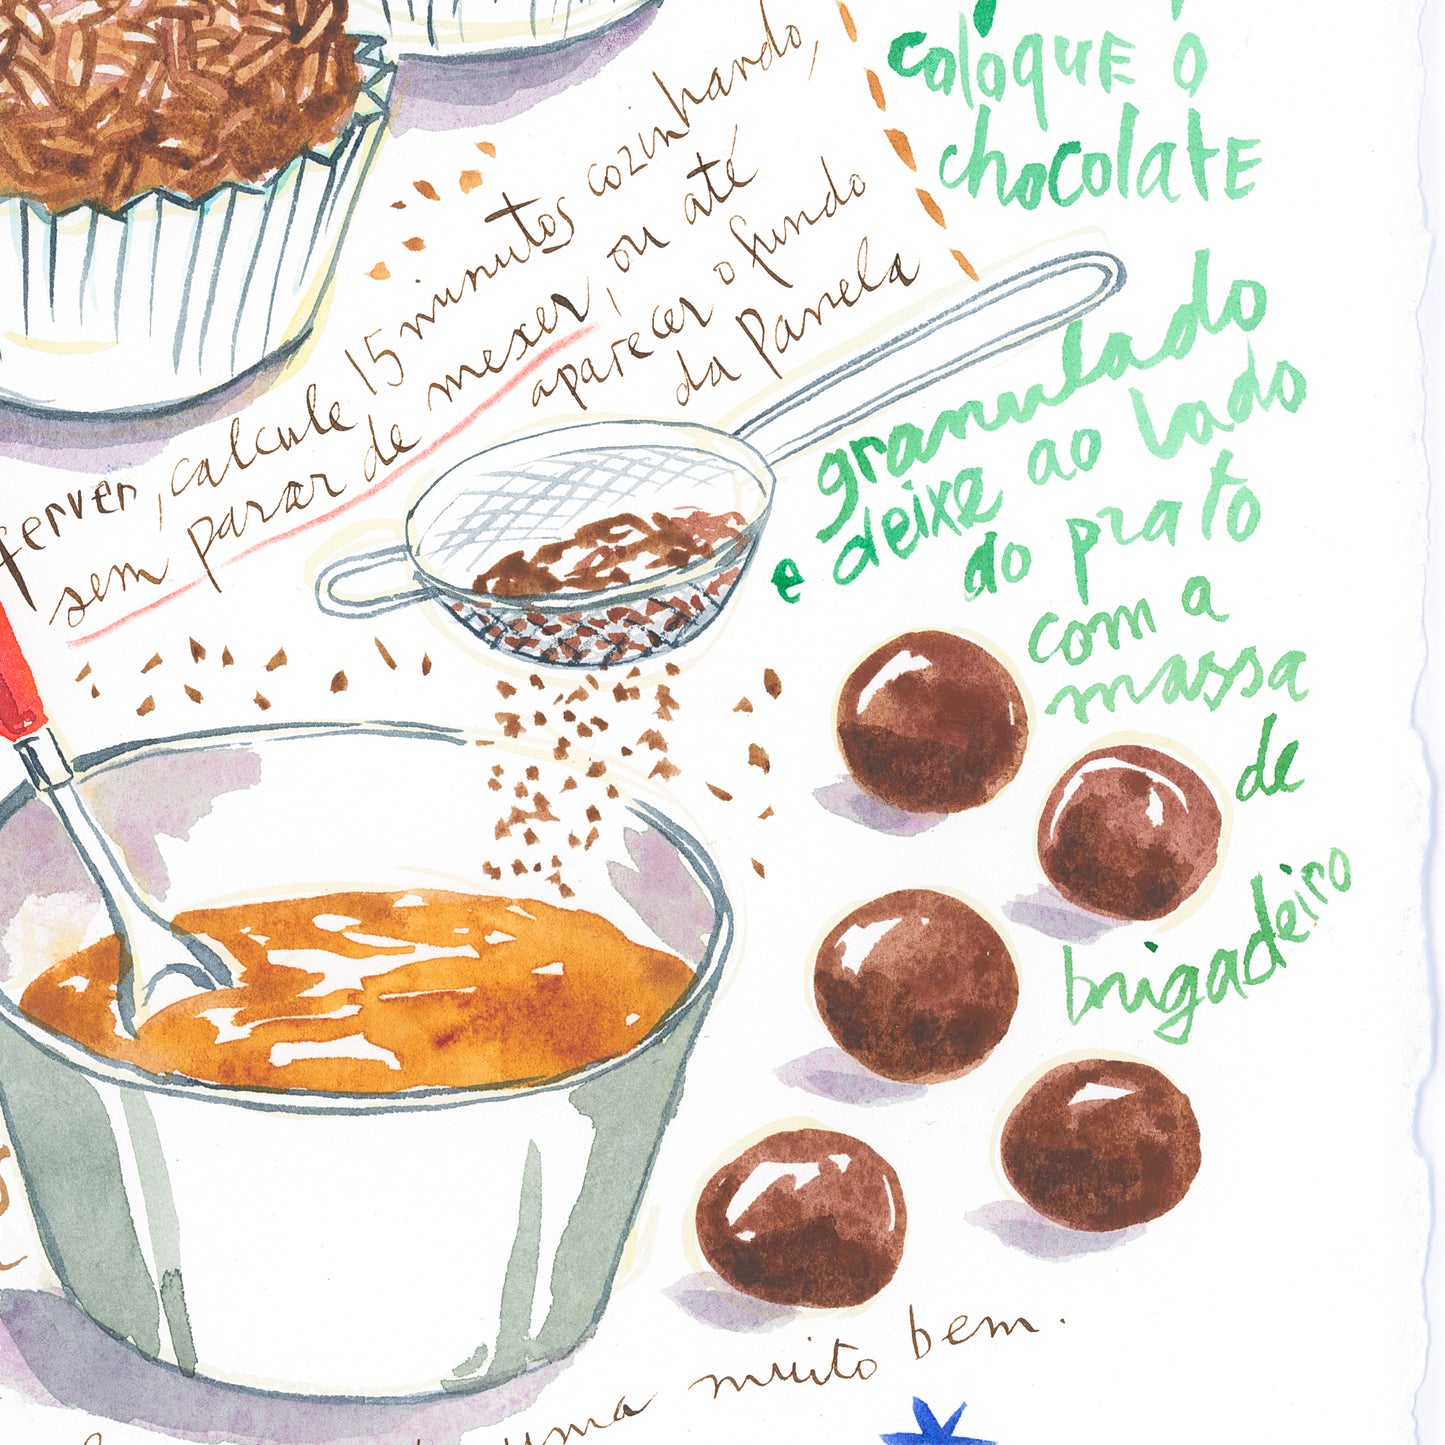 ferver, calcule 15 minutos cozinhando,
sem parar de mexer, ou até
aparecer o fundo
da panela
coloque o
chocolate
granulado
e deixe ao lado
do prato
com a
massa
de
brigadeiro
uma muito bem.